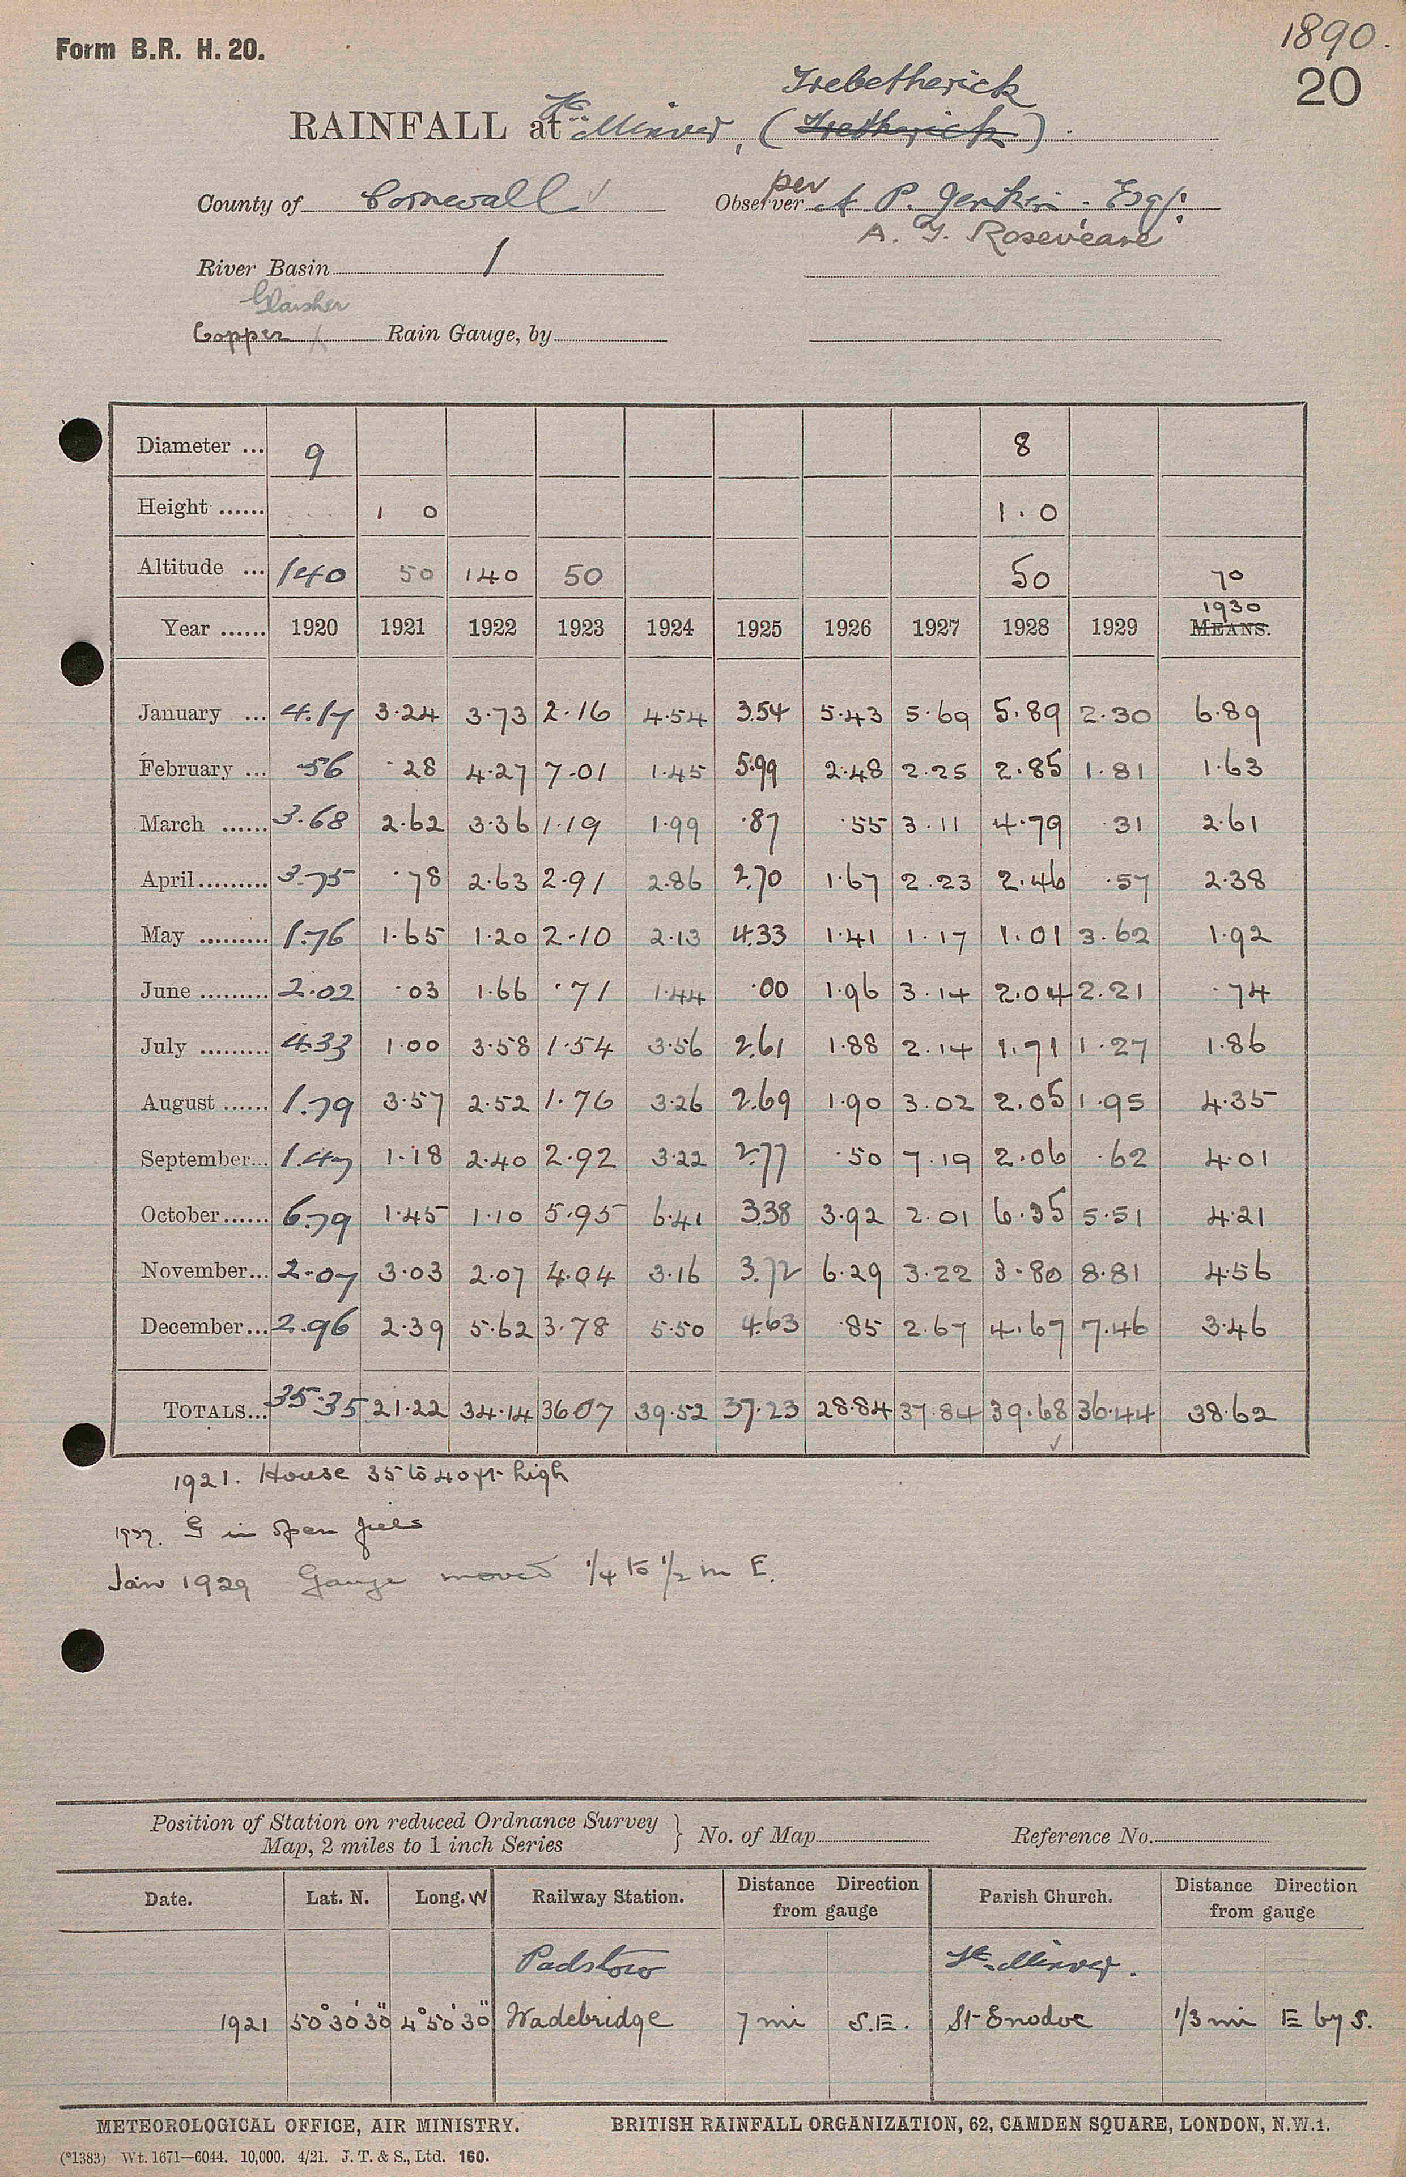 Form B.R. H. 20.
1890.
20
Trebetherick
RAINFALL at St. Minver, (Tretherick)
County of Cornwall
Observer per A P. Jenkin, Esq.
A. T. Roseveare
River Basin 1
Glaisher
Copper Rain Gauge, by
Diameter ... 9 8
Height ...... 1 0 1.0
Altitude ... 140 50 140 50 50 70
1930
Year ...... 1920 1921 1922 1923 1924 1925 1926 1927 1928 1929 MEANS.
January ... 4.17 3.24 3.73 2.16 4.54 3.54 5.43 5.69 5.89 2.30 6.89
February ... .56 .28 4.27 7.01 1.45 5.99 2.48 2.25 2.85 1.81 1.63
March ...... 3.68 2.62 3.36 1.19 1.99 .87 .55 3.11 4.79 .31 2.61
April......... 3.75 .78 2.63 2.91 2.86 2.70 1.67 2.23 2.46 .57 2.38
May ......... 1.76 1.65 1.20 2.10 2.13 4.33 1.41 1.17 1.01 3.62 1.92
June ......... 2.02 .03 1.66 .71 1.44 .00 1.96 3.14 2.04 2.21 .74
July ......... 4.33 1.00 3.58 1.54 3.56 2.61 1.88 2.14 1.71 1.27 1.86
August ...... 1.79 3.57 2.52 1.76 3.26 2.69 1.90 3.02 2.05 1.95 4.35
September... 1.47 1.18 2.40 2.92 3.22 2.77 .50 7.19 2.06 .62 4.01
October...... 6.79 1.45 1.10 5.95 6.41 3.38 3.92 2.01 6.35 5.51 4.21
November... 2.07 3.03 2.07 4.04 3.16 3.72 6.29 3.22 3.80 8.81 4.56
December... 2.96 2.39 5.62 3.78 5.50 4.63 .85 2.67 4.67 7.46 3.46
TOTALS... 35.35 21.22 34.14 36.07 39.52 37.23 28.84 37.84 39.68 36.44 38.62
1921. House 35 to 40 ft. high
1927. G in open field
Jan 1929 Gauge moved 1/4 to 1/2 m E.
Position of Station on reduced Ordnance Survey
Map, 2 miles to 1 inch Series } No. of Map Reference No.
Date. Lat. N. Long. W Railway Station. Distance Direction from gauge Parish Church. Distance Direction from gauge
Padstow St. Minver.
1921 50°30'30" 4°50'30" Wadebridge 7 mi S.E. St Enodoc 1/3 mi E by S.
METEOROLOGICAL OFFICE, AIR MINISTRY. BRITISH RAINFALL ORGANIZATION, 62, CAMDEN SQUARE, LONDON, N.W.1.
(*1383) Wt. 1671—6044. 10,000. 4/21. J. T. & S., Ltd. 160.